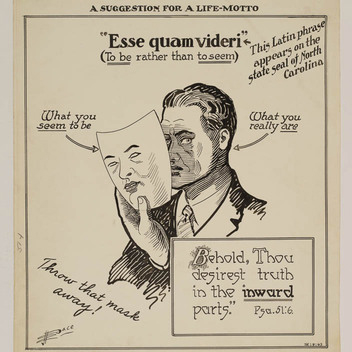 A SUGGESTION FOR A LIFE-MOTTO
"Esse quam videri"
(To be rather than to seem)
This Latin phrase
appears on the
state seal of North
Carolina
What you
seem to be
What you
really are
Behold, Thou
desirest truth
in the inward
parts." Psa. 51:6.
Throw that mask
away!
PACE